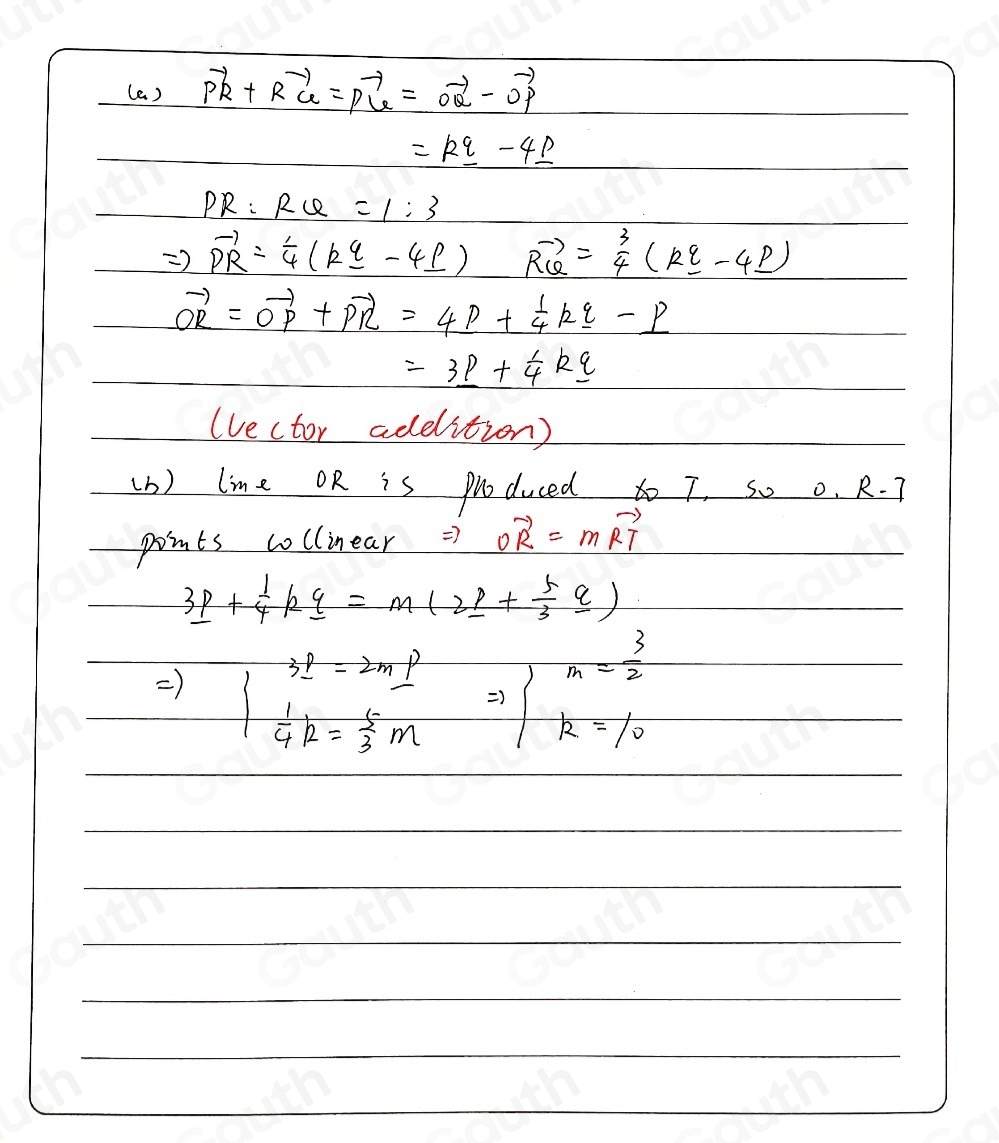 (a) PR + RQ = PQ = OQ - OP
= kq - 4p
PR : RQ = 1 : 3
=> PR = 1/4 (kq - 4p) RQ = 3/4 (kq - 4p)
OR = OP + PR = 4p + 1/4 kq - p
= 3p + 1/4 kq
(vector addition)
(b) line OR is produced to T, so O. R. T
points collinear => OR = mRT
3p + 1/4 kq = m (2p + 5/3 q)
=> { 3p = 2mp => { m = 3/2
1/4 k = 5/3 m k = 10
Gauth